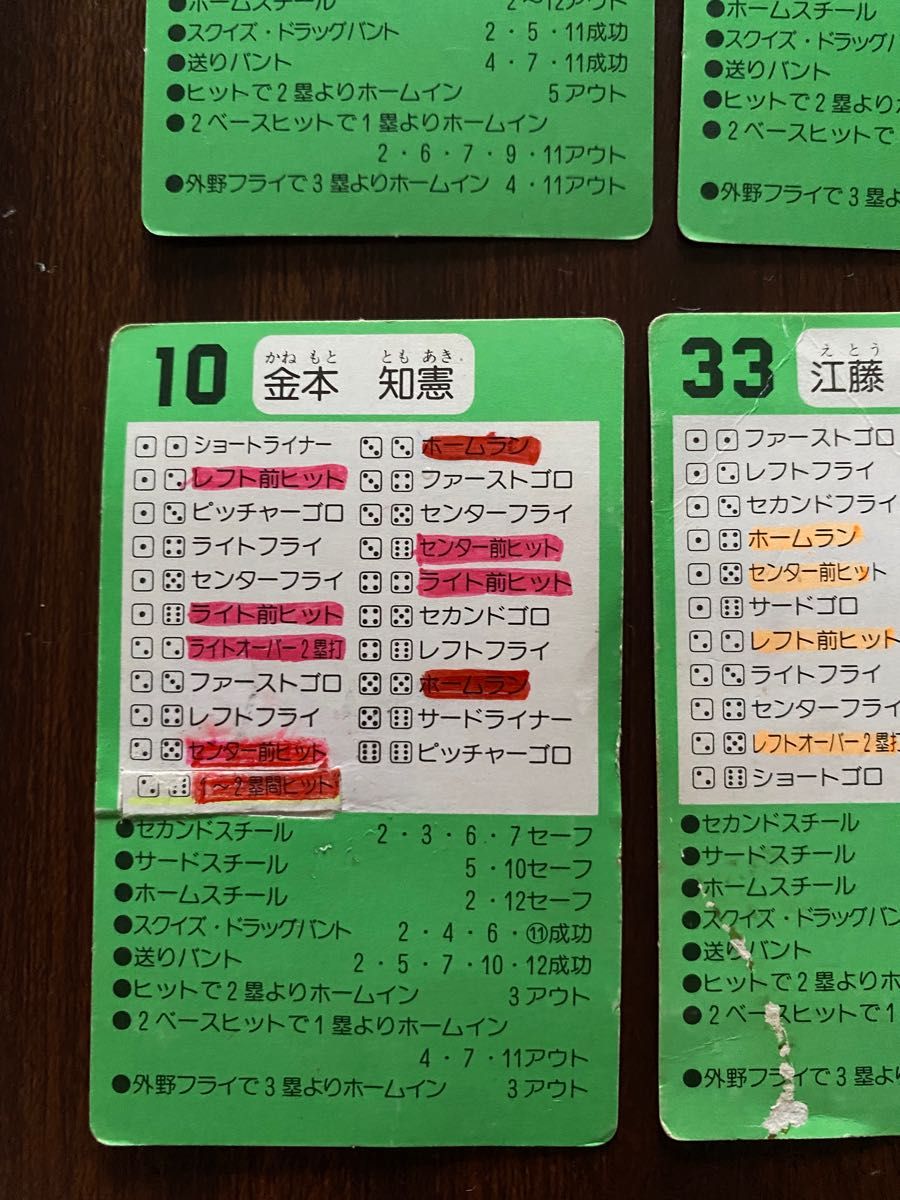 ●ホームスチール 2～12アウト
●スクイズ・ドラッグバント 2・5・11成功
●送りバント 4・7・11成功
●ヒットで2塁よりホームイン 5アウト
●2ベースヒットで1塁よりホームイン
2・6・7・9・11アウト
●外野フライで3塁よりホームイン 4・11アウト
●ホームスチール
●スクイズ・ドラッグ
●送りバント
●ヒットで2塁より
●2ベースヒットで
●外野フライで3塁
10 金本 知憲
かね もと とも あき
ショートライナー
レフト前ヒット
ピッチャーゴロ
ライトフライ
センターフライ
ライト前ヒット
ライトオーバー2塁打
ファーストゴロ
レフトフライ
センター前ヒット
1～2塁間ヒット
ホームラン
ファーストゴロ
センターフライ
センター前ヒット
ライト前ヒット
セカンドゴロ
レフトフライ
ホームラン
サードライナー
ピッチャーゴロ
●セカンドスチール 2・3・6・7セーフ
●サードスチール 5・10セーフ
●ホームスチール 2・12セーフ
●スクイズ・ドラッグバント 2・4・6・⑪成功
●送りバント 2・5・7・10・12成功
●ヒットで2塁よりホームイン 3アウト
●2ベースヒットで1塁よりホームイン
4・7・11アウト
●外野フライで3塁よりホームイン 3アウト
33 江藤
えとう
ファーストゴロ
レフトフライ
セカンドフライ
ホームラン
センター前ヒット
サードゴロ
レフト前ヒット
ライトフライ
センターフライ
レフトオーバー2塁打
ショートゴロ
●セカンドスチール
●サードスチール
●ホームスチール
●スクイズ・ドラッグバン
●送りバント
●ヒットで2塁よりホ
●2ベースヒットで1
●外野フライで3塁よ